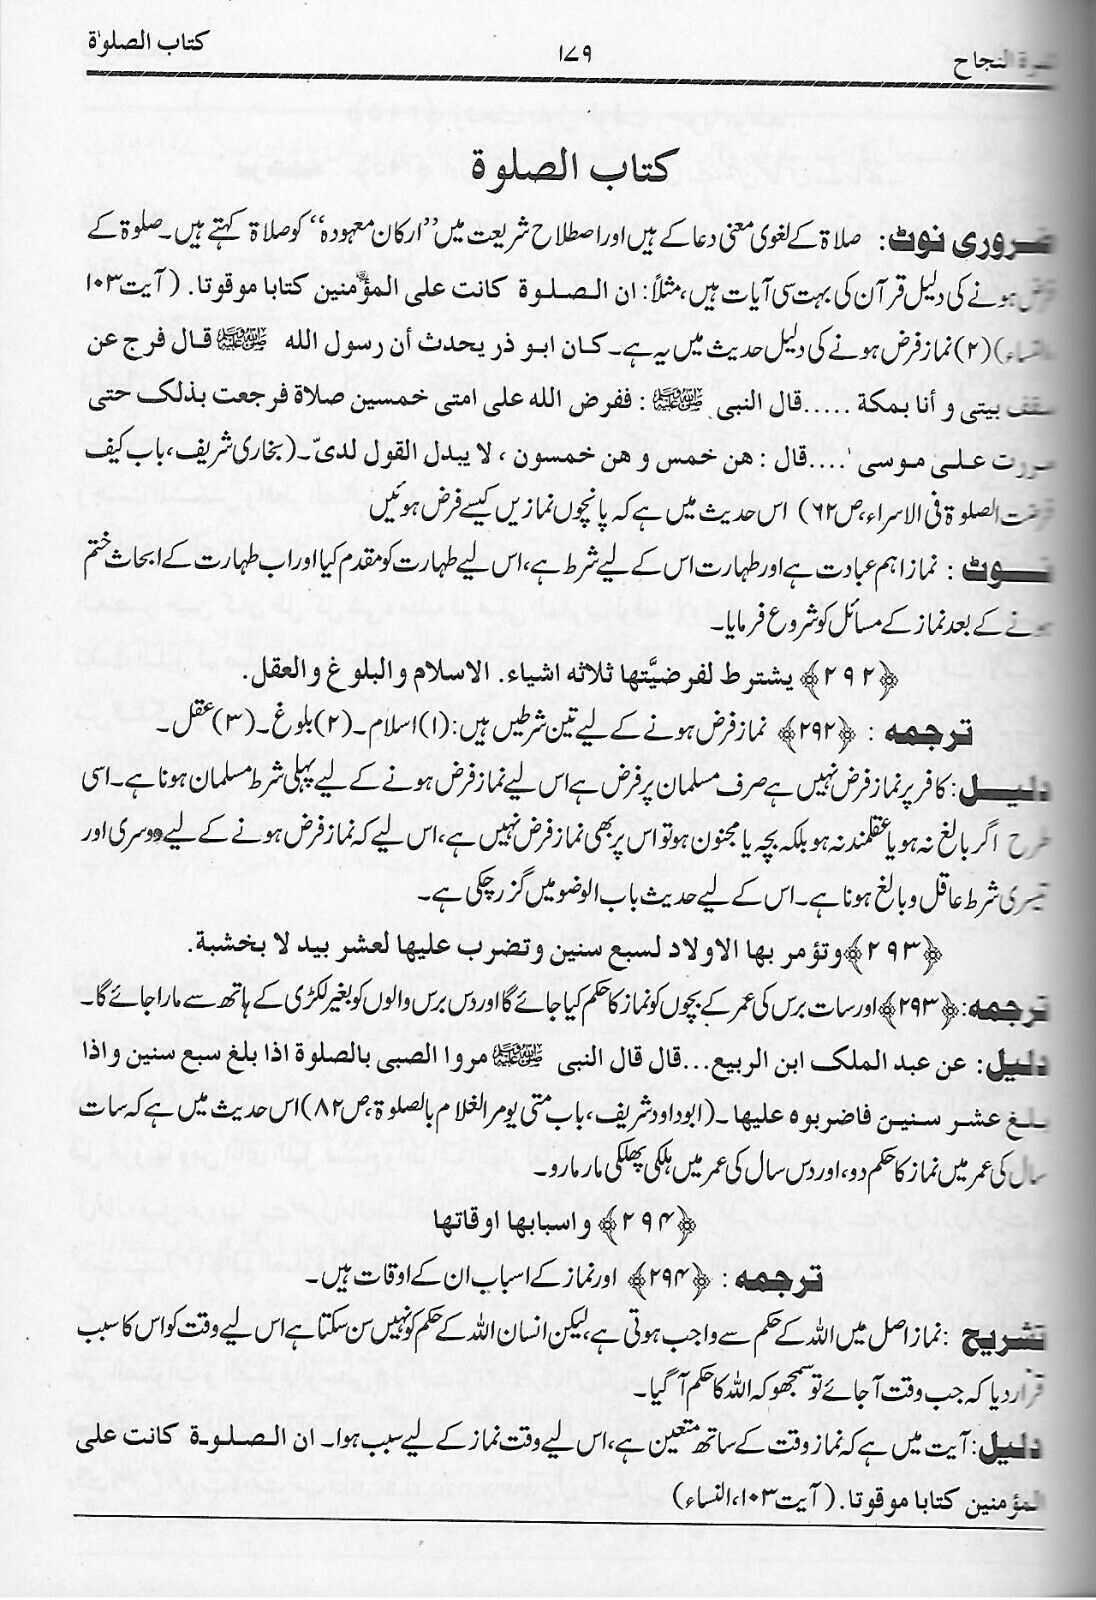 كتاب الصلوٰة
١٧٩
النجاح
كتاب الصلوة
ضروری نوٹ: صلاۃ کے لغوی معنی دعا کے ہیں اور اصطلاح شریعت میں ”ارکان معہودہ“ کو صلاۃ کہتے ہیں۔ صلوۃ کے
فرض ہونے کی دلیل قرآن کی بہت سی آیات ہیں، مثلاً: ان الصلوة كانت على المؤمنين كتابا موقوتا. (آیت ۱۰۳
النساء) (۲) نماز فرض ہونے کی دلیل حدیث میں یہ ہے۔ كان ابو ذر يحدث أن رسول الله ﷺ قال فرج عن
سقف بيتى و أنا بمكة .....قال النبى ﷺ : ففرض الله على امتى خمسين صلاة فرجعت بذلك حتى
مررت على موسى ....قال : هن خمس و هن خمسون ، لا يبدل القول لدىّ۔ (بخاری شریف، باب کیف
فرضت الصلوۃ فی الاسراء، ص ۶۲) اس حدیث میں ہے کہ پانچوں نمازیں کیسے فرض ہوئیں
نوٹ : نماز اہم عبادت ہے اور طہارت اس کے لیے شرط ہے، اس لیے طہارت کو مقدم کیا اور اب طہارت کے ابحاث ختم
ہونے کے بعد نماز کے مسائل کو شروع فرمایا۔
﴿۲۹۲﴾ يشترط لفرضيَّتها ثلاثه اشياء. الاسلام والبلوغ والعقل.
ترجمہ : ﴿۲۹۲﴾ نماز فرض ہونے کے لیے تین شرطیں ہیں: (۱) اسلام۔ (۲) بلوغ۔ (۳) عقل۔
دلیل: کافر پر نماز فرض نہیں ہے صرف مسلمان پر فرض ہے اس لیے نماز فرض ہونے کے لیے پہلی شرط مسلمان ہونا ہے۔ اسی
طرح اگر بالغ نہ ہو یا عقلمند نہ ہو بلکہ بچہ یا مجنون ہو تو اس پر بھی نماز فرض نہیں ہے، اس لیے کہ نماز فرض ہونے کے لیے دوسری اور
تیسری شرط عاقل و بالغ ہونا ہے۔ اس کے لیے حدیث باب الوضو میں گزر چکی ہے۔
﴿۲۹۳﴾ وتؤمر بها الاولاد لسبع سنين وتضرب عليها لعشر بيد لا بخشبة.
ترجمہ: ﴿۲۹۳﴾ اور سات برس کی عمر کے بچوں کو نماز کا حکم کیا جائے گا اور دس برس والوں کو بغیر لکڑی کے ہاتھ سے مارا جائے گا۔
دلیل: عن عبد الملك ابن الربيع...قال قال النبى ﷺ مروا الصبى بالصلوة اذا بلغ سبع سنين واذا
بلغ عشر سنين فاضربوه عليها۔ (ابوداود شریف، باب متی یومر الغلام بالصلوۃ، ص ۸۲) اس حدیث میں ہے کہ سات
سال کی عمر میں نماز کا حکم دو، اور دس سال کی عمر میں ہلکی پھلکی مار مارو۔
﴿۲۹۴﴾ واسبابها اوقاتها
ترجمہ : ﴿۲۹۴﴾ اور نماز کے اسباب ان کے اوقات ہیں۔
تشریح : نماز اصل میں اللہ کے حکم سے واجب ہوتی ہے، لیکن انسان اللہ کے حکم کو نہیں سن سکتا ہے اس لیے وقت کو اس کا سبب
قرار دیا کہ جب وقت آ جائے تو سمجھو کہ اللہ کا حکم آ گیا۔
دلیل: آیت میں ہے کہ نماز وقت کے ساتھ متعین ہے، اس لیے وقت نماز کے لیے سبب ہوا۔ ان الصلوة كانت على
المؤمنين كتابا موقوتا. (آیت ۱۰۳، النساء)